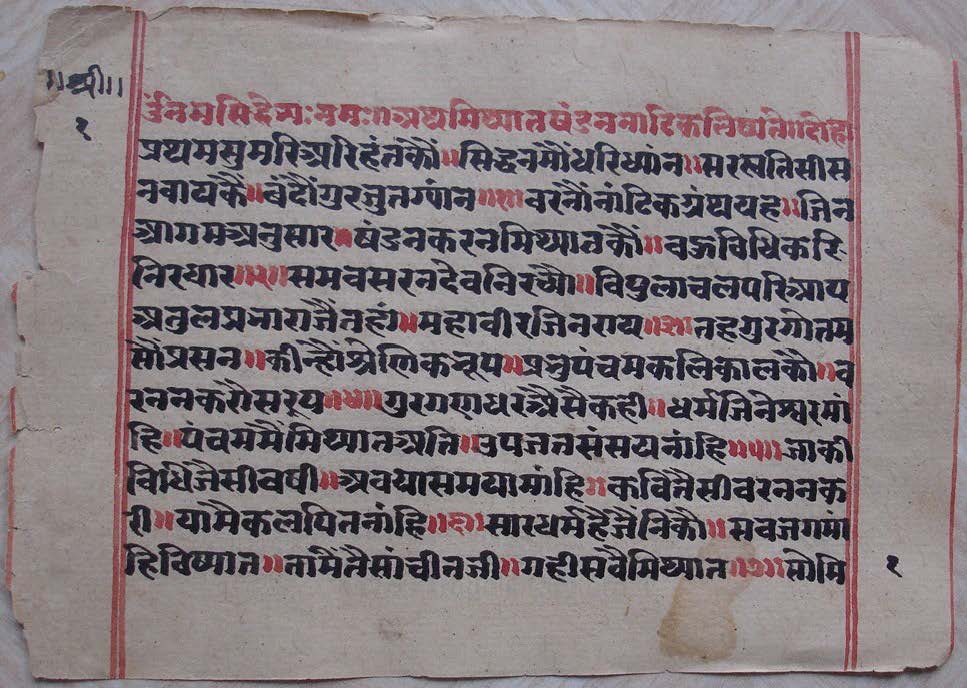 ॥श्री॥
१
उंनमसिद्देभ्यःनमः॥अथमिथ्यातषंडननाटिकलिष्यते॥दोहा
प्रथमसुमरिअरिहंतकौं॥सिद्धनमौंधरिध्यांन॥सरस्वतिसीस
नवायकैं॥बंदौंगुरजुतग्यांन॥१॥वरनौंनांटिकग्रंथयह॥जिन
आगमअनुसार॥षंडनकरनमिथ्यातकौं॥वज्रविधिकरि
निरधार॥२॥समवसरनदेवनिरच्यौ॥विपुलाचलपरिआय
अतुलप्रभाराजैंतहां॥महावीरजिनराय॥३॥तहगुरगोतम
सौंप्रसन॥कीन्हौंश्रेणिकभूप॥प्रभुपंचमकलिकालकौ॥व
रननकरौसरूप॥४॥गुरगणधरअैसैकही॥धर्मजिनेश्वरमां
हि॥पंचममैंमिथ्यातअति॥उपजतसंसयनांहि॥५॥जाकी
विधिजैसीवषी॥अवयासमयामांहि॥कवितैसीवरननक
री॥यामैकलपितनांहि॥६॥सारधर्महैजैंनिकौ॥सवजगमां
हिविष्यात॥तामैंतैसांचीतजी॥गहीसवैमिथ्यात॥७॥सोमि
१